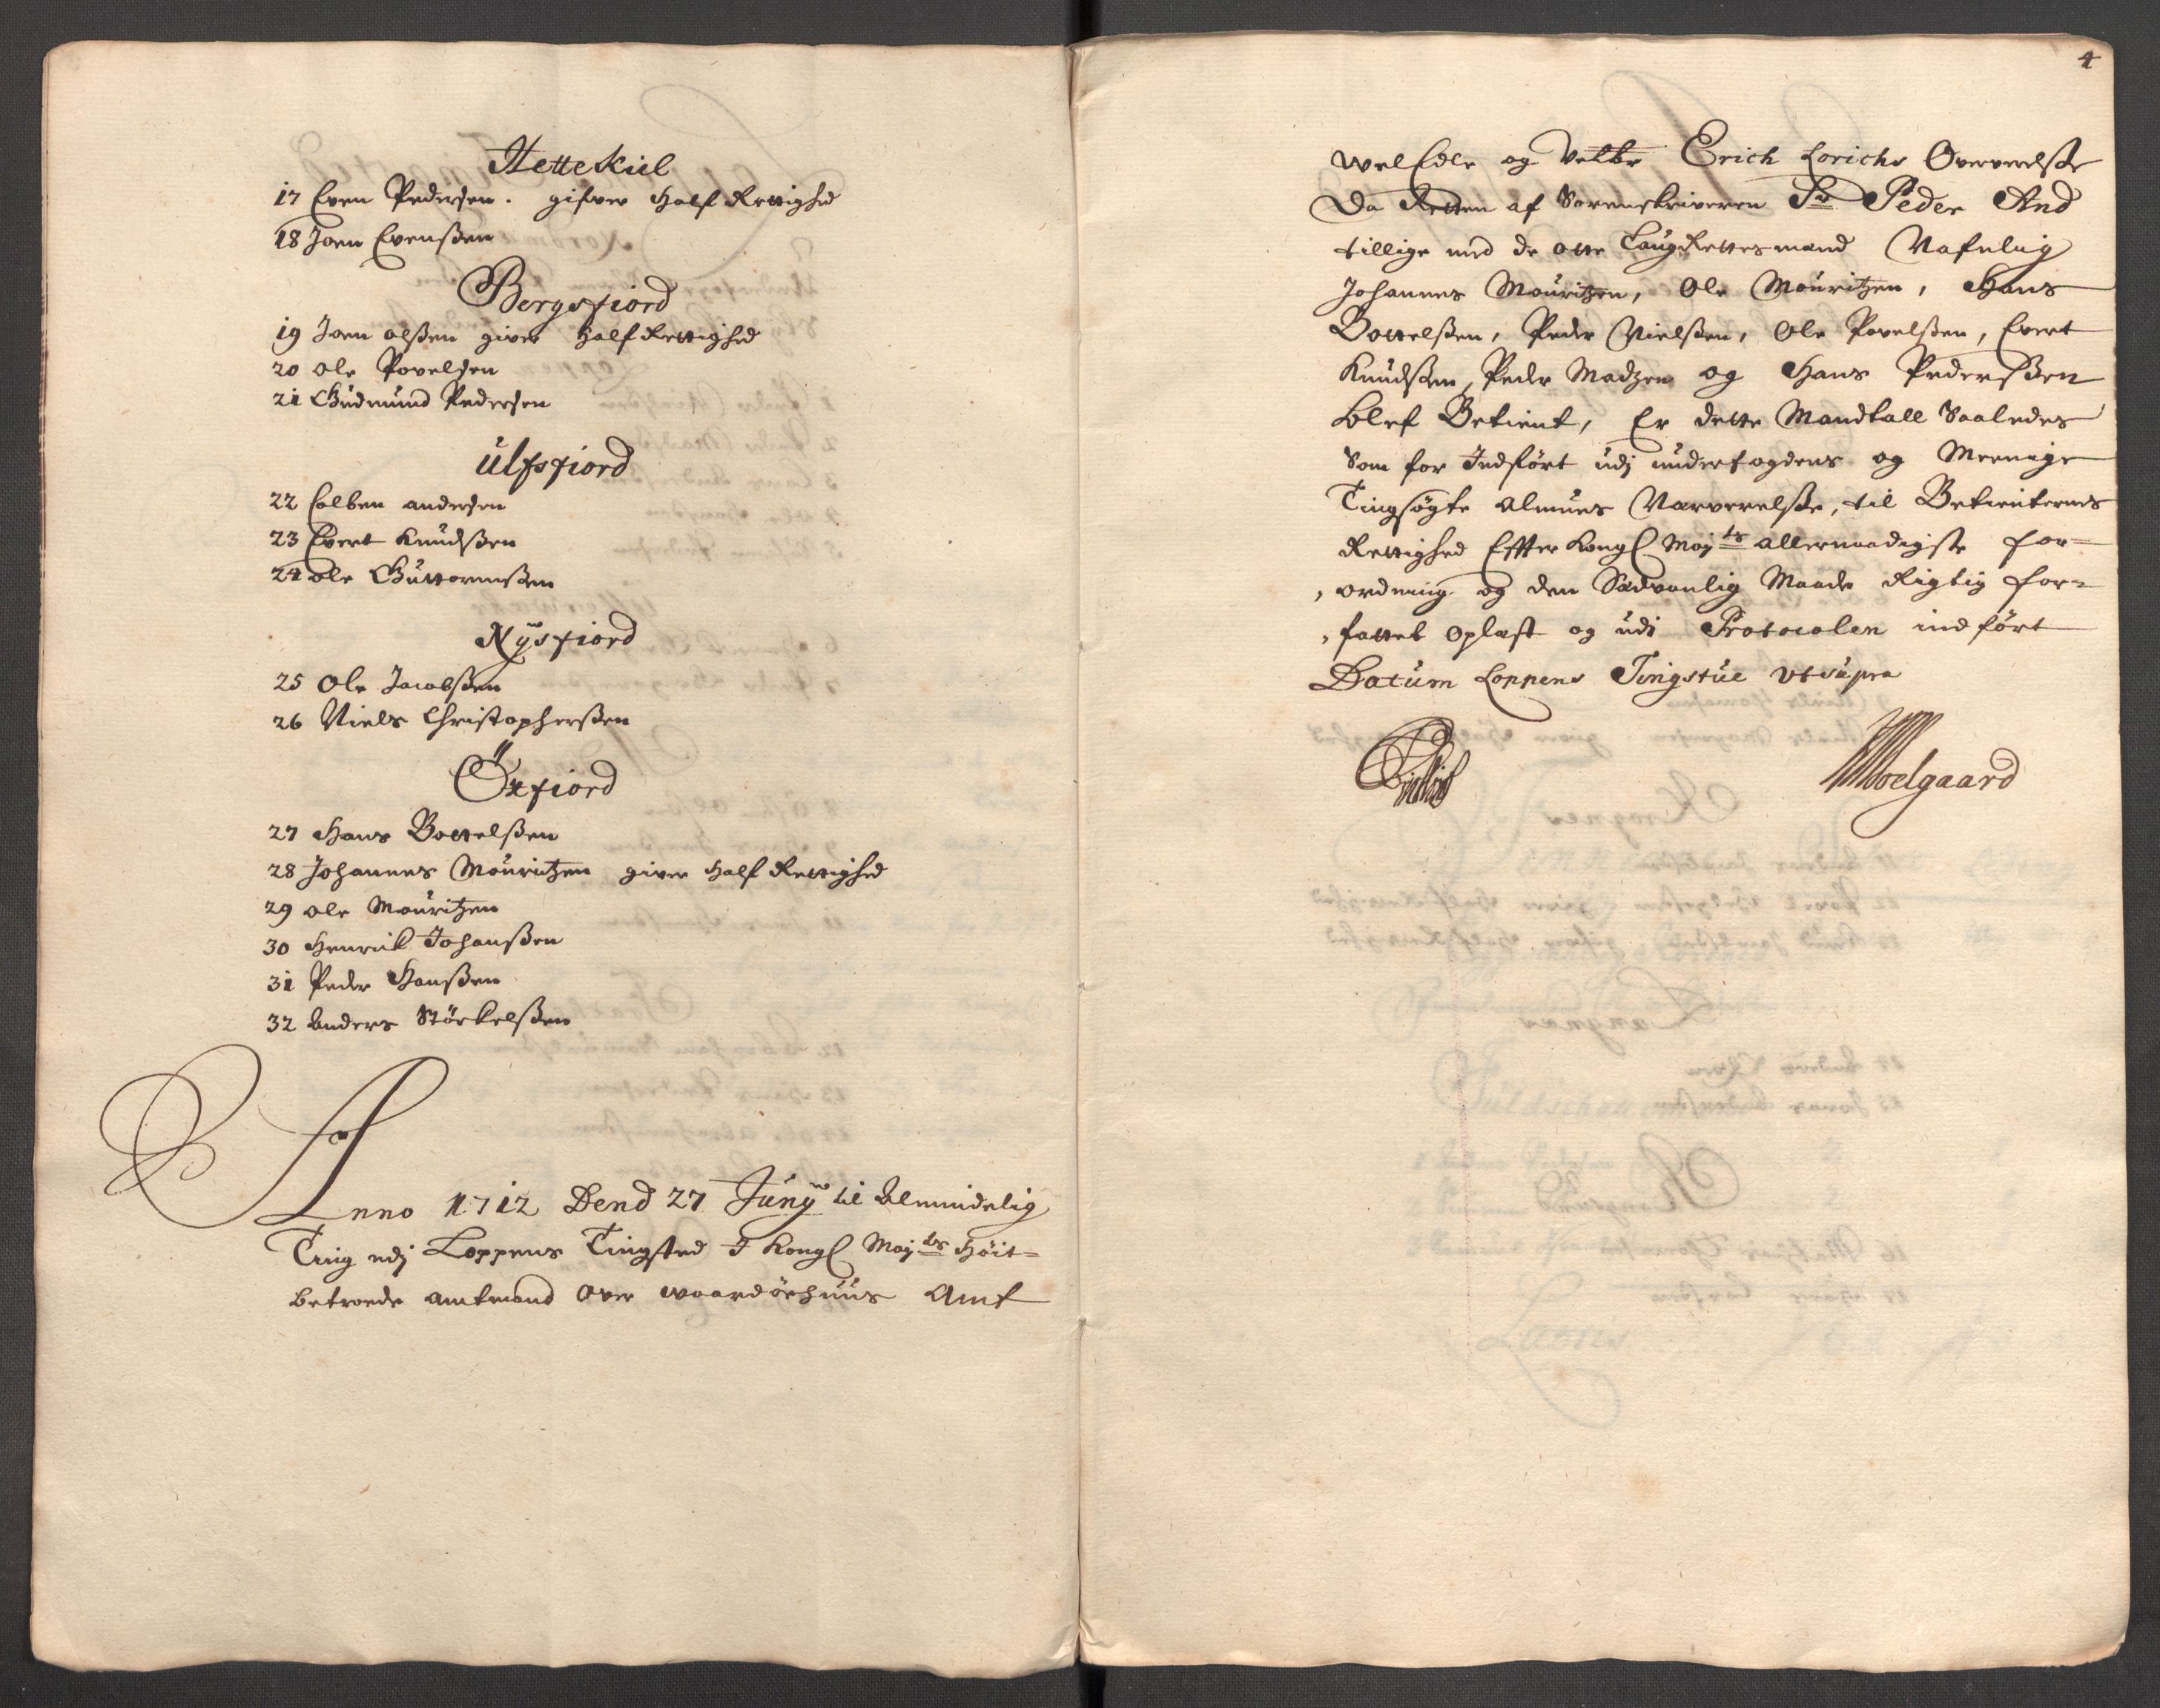 Hettekiel
17 Even Pedersen. gifver Half Rettighed
18 Joen Evenßen
Bergsfiord
19 Joen olßen giver Half Rettighed
20 ole Povelsen
21 Gudmund Pedersen
ülfsfiord
22 Colben andersen
23 Evert Knudßen
24 ole Guttormßen
Nÿsfiord
25 Ole Jacobßen
26 Niels Christopherßen
Öxfiord
27 Hans Bottelßen
28 Johannes Mouritzen giver Half Rettighed
29 ole Mouritzen
30 Henrick Johanßen
31 Peder Hanßen
32 Anders Störkelßen
Anno 1712 Dend 27 Junÿ til Almindelig
Ting udj Loppens Tingsted I Kongl Mayts Höit-
betroede amtmand Over waardöehuus Amt
4
welEdle og Velbr Erich Lorichs Oververelße
Da Retten af Sorenskriveren Sr Peder And
tillige med de otte LaugRettesmænd Nafnlig
Johannes Mouritzen, Ole Mouritzen, Hans
Bottelßen, Peder Nielßen, Ole Povelßen, Evert
Knudßen, Peder Madzen og Hans Pederßen
blef Betient, Er dette Mandtall Saaledes
Som for Indfört udj underfogdens og Meenige
Tingsögte Almues Nærverelße, til Betienternes
Rettighed Effter Kongl Mayts allernaadigste for-
ordning og den Sædvanlig Maade Rigtig for-
fattet Oplæst og udi Protocolen indfört
Datum Loppens Tingstue Vtsupra
Woelgaard